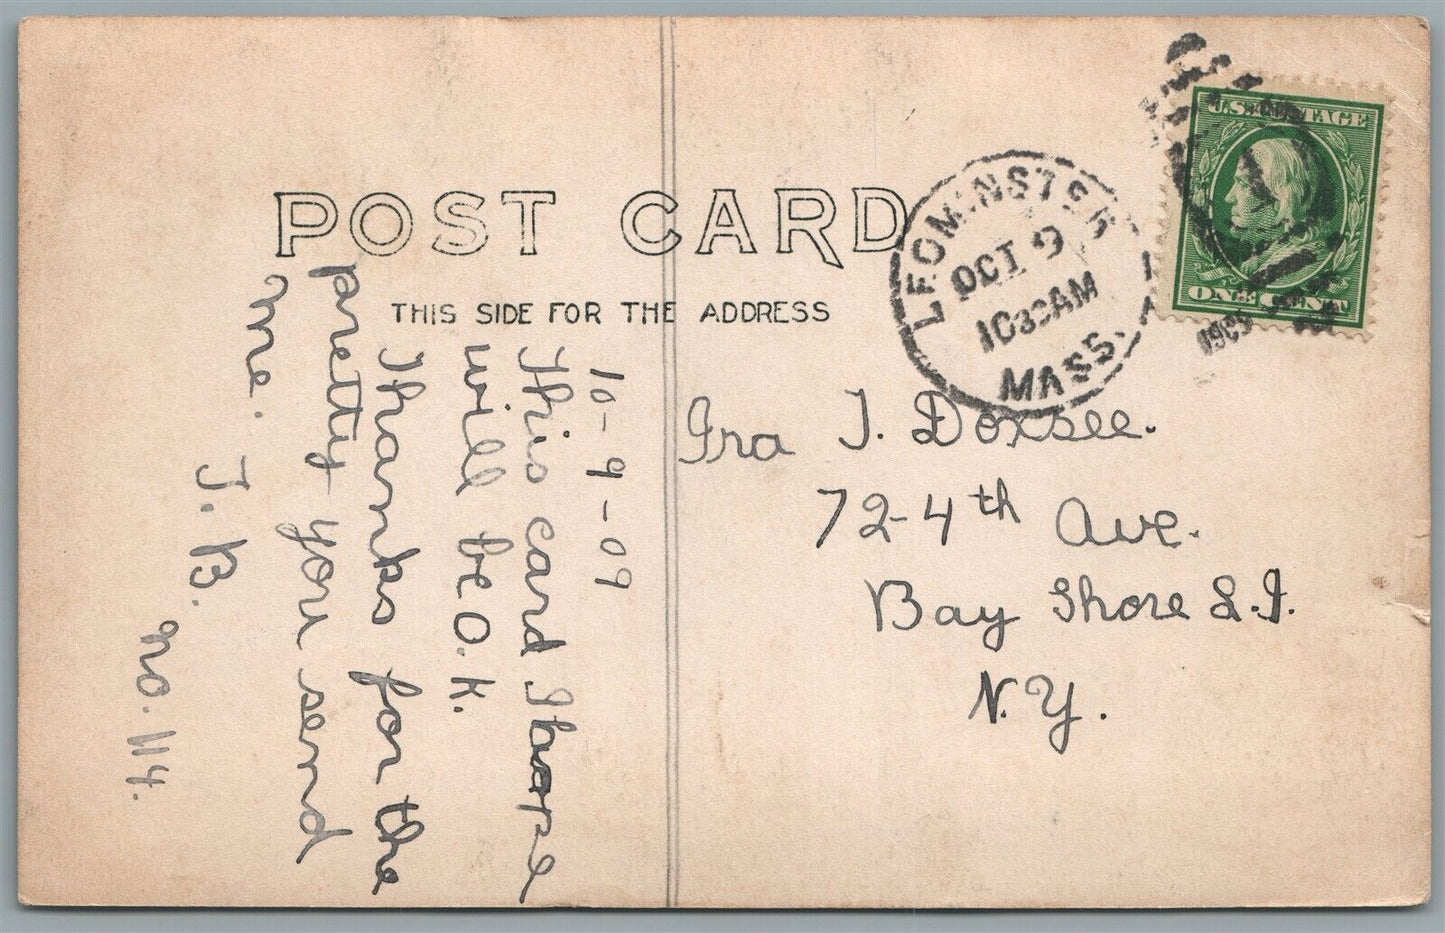 POST CARD
THIS SIDE FOR THE ADDRESS
10-9-09
This card I hope
will be O.K.
Thanks for the
pretty you send
me.
J. B.
no. 114.
LEOMINSTER
OCT 9
1030AM
MASS.
1909
U.S. POSTAGE
ONE CENT
Ira J. Doxsee.
72-4th Ave.
Bay Shore L.I.
N.Y.